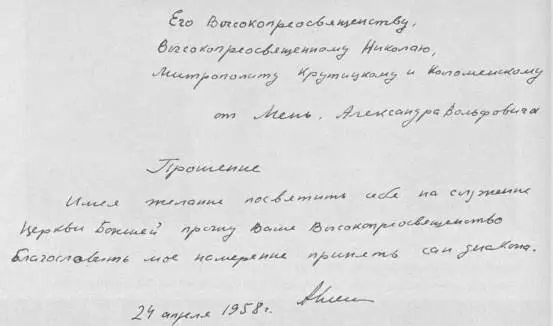 Его Высокопреосвященству,
Высокопреосвященному Николаю,
Митрополиту Крутицкому и Коломенскому
от Мень, Александра Вольфовича
Прошение
Имея желание посвятить себя на служение
Церкви Божией прошу Ваше Высокопреосвященство
благословить мое намерение принять сан диакона.
24 апреля 1958 г. АМень